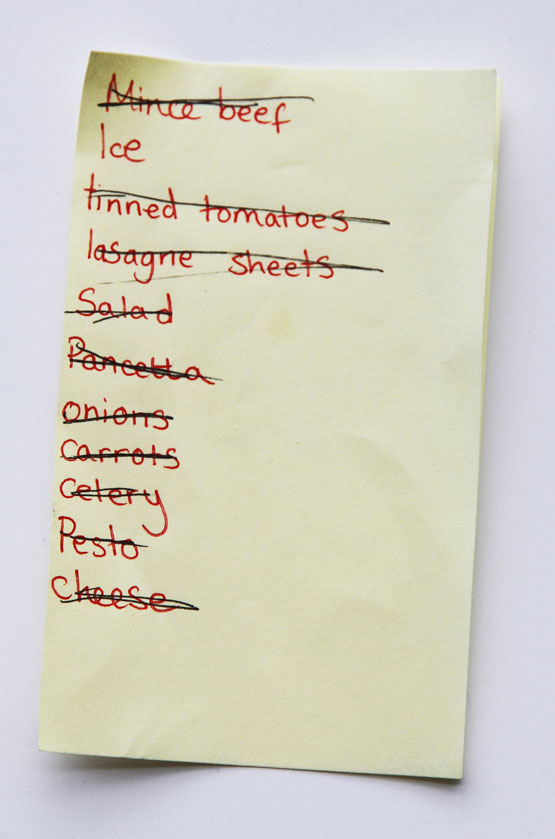 Mince beef
Ice
tinned tomatoes
lasagne sheets
Salad
Pancetta
onions
Carrots
Celery
Pesto
Cheese